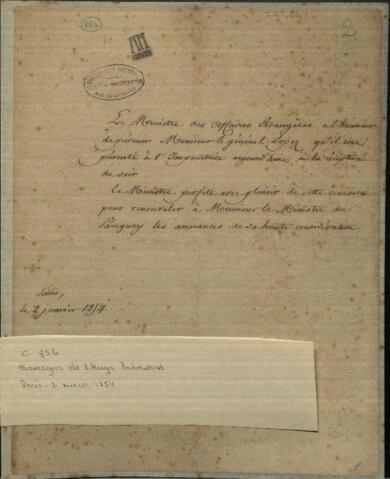 2
Le Ministre des Affaires Etrangères a l'honneur
de prévenir Monsieur le général Lopez qu'il sera
présenté à l'Impératrice aujourd'hui, à la réception
du soir.
Le Ministre profite avec plaisir de cette occasion
pour renouveler à Monsieur le Ministre du
Paraguay les assurances de sa haute considération
Paris,
le 2 janvier 1854.
C. 856
Drouyn de Lhuys
Paris, 2 enero 1854